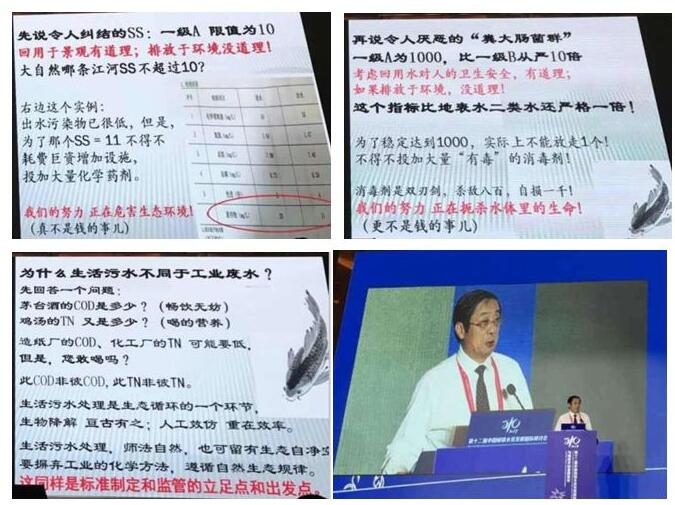 先说令人纠结的SS：一级A 限值为10
回用于景观有道理；排放于环境没道理！
大自然哪条江河SS不超过10？
右边这个实例：
出水污染物已很低，但是，
为了那个SS = 11 不得不
耗费巨资增加设施，
投加大量化学药剂。
我们的努力 正在危害生态环境！
（真不是钱的事儿）
再说令人厌恶的“粪大肠菌群”
一级A为1000，比一级B从严10倍
考虑回用水对人的卫生安全，有道理；
如果排放于环境，没道理！
这个指标比地表水二类水还严格一倍！
为了稳定达到1000，实际上不能放走1个！
不得不投加大量“有毒”的消毒剂！
消毒剂是双刃剑，杀敌八百，自损一千！
我们的努力 正在扼杀水体里的生命！
（更不是钱的事儿）
为什么生活污水不同于工业废水？
先回答一个问题：
茅台酒的COD是多少？（畅饮无妨）
鸡汤的TN 又是多少？（喝的营养）
造纸厂的COD、化工厂的TN 可能要低，
但是，您敢喝吗？
此COD非彼COD，此TN非彼TN。
生活污水处理是生态循环的一个环节，
生物降解 亘古有之；人工效仿 重在效率。
生活污水处理，师法自然，也可留有生态自净空
要摒弃工业的化学方法，遵循自然生态规律。
这同样是标准制定和监管的立足点和出发点。